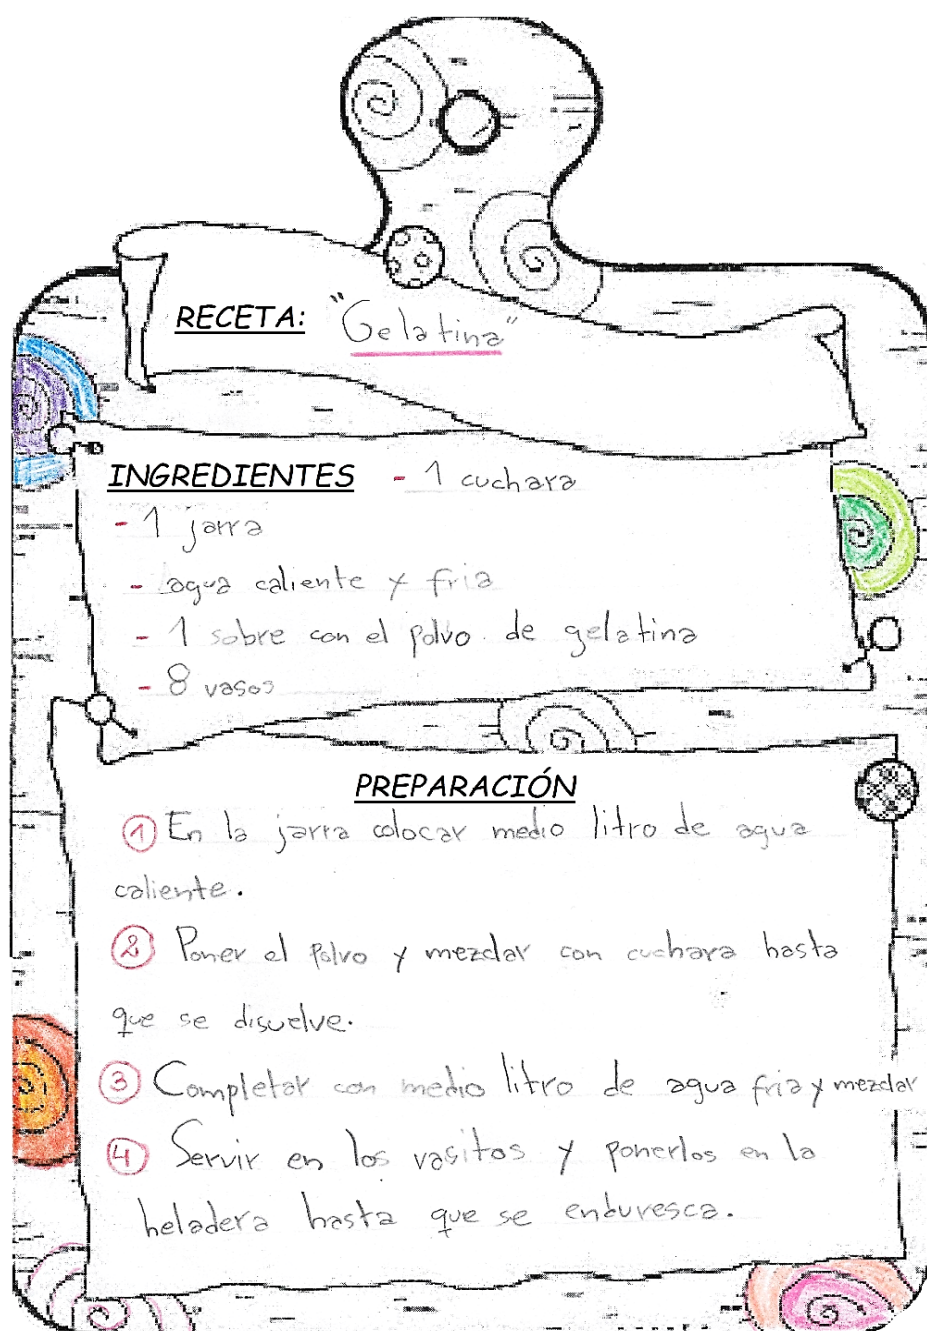 RECETA: "Gelatina"
INGREDIENTES - 1 cuchara
- 1 jarra
- agua caliente y fria
- 1 sobre con el polvo de gelatina
- 8 vasos
PREPARACIÓN
① En la jarra colocar medio litro de agua
caliente.
② Poner el polvo y mezclar con cuchara hasta
que se disuelve.
③ Completar con medio litro de agua fria y mezclar
④ Servir en los vasitos y ponerlos en la
heladera hasta que se enduresca.